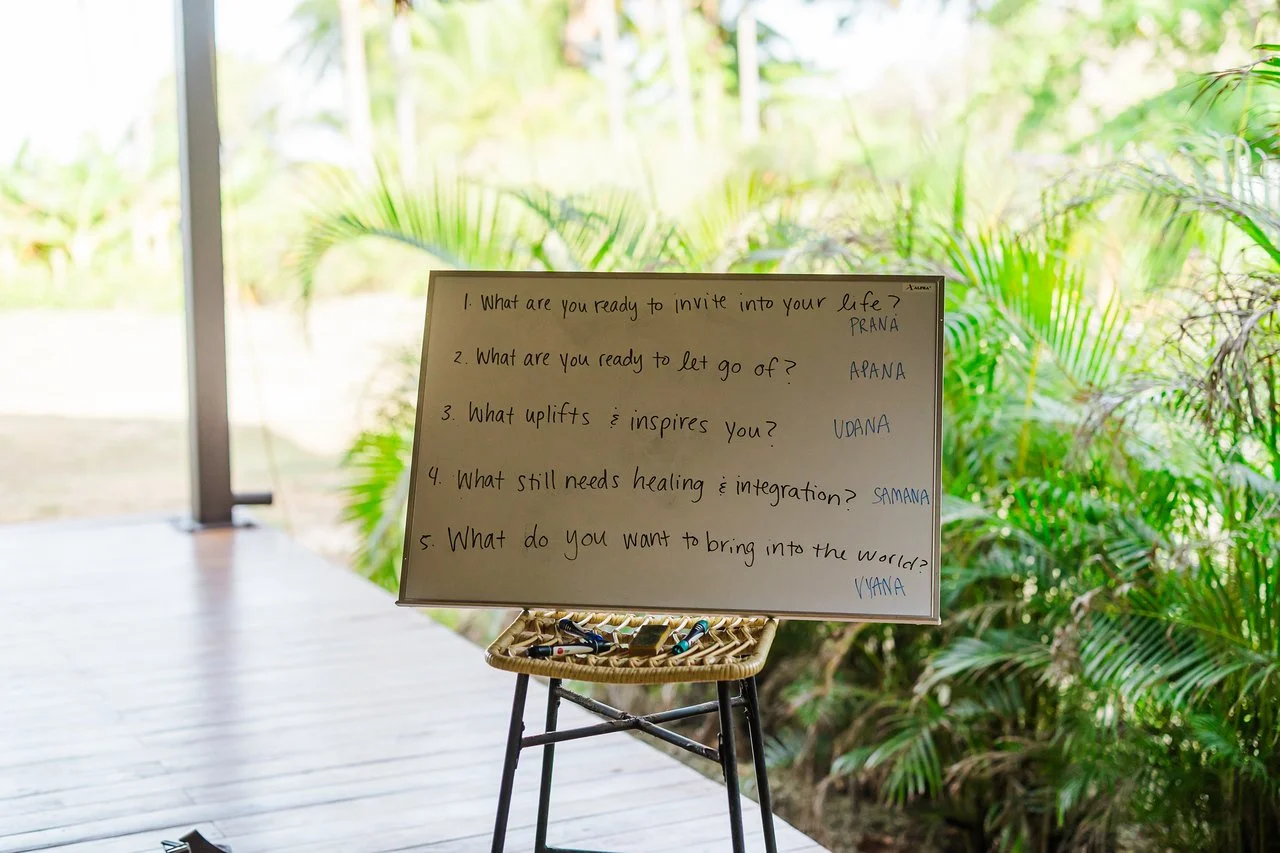 ALPHA
1. What are you ready to invite into your life?
PRANA
2. What are you ready to let go of? APANA
3. What uplifts & inspires you? UDANA
4. What still needs healing & integration? SAMANA
5. What do you want to bring into the world?
VYANA